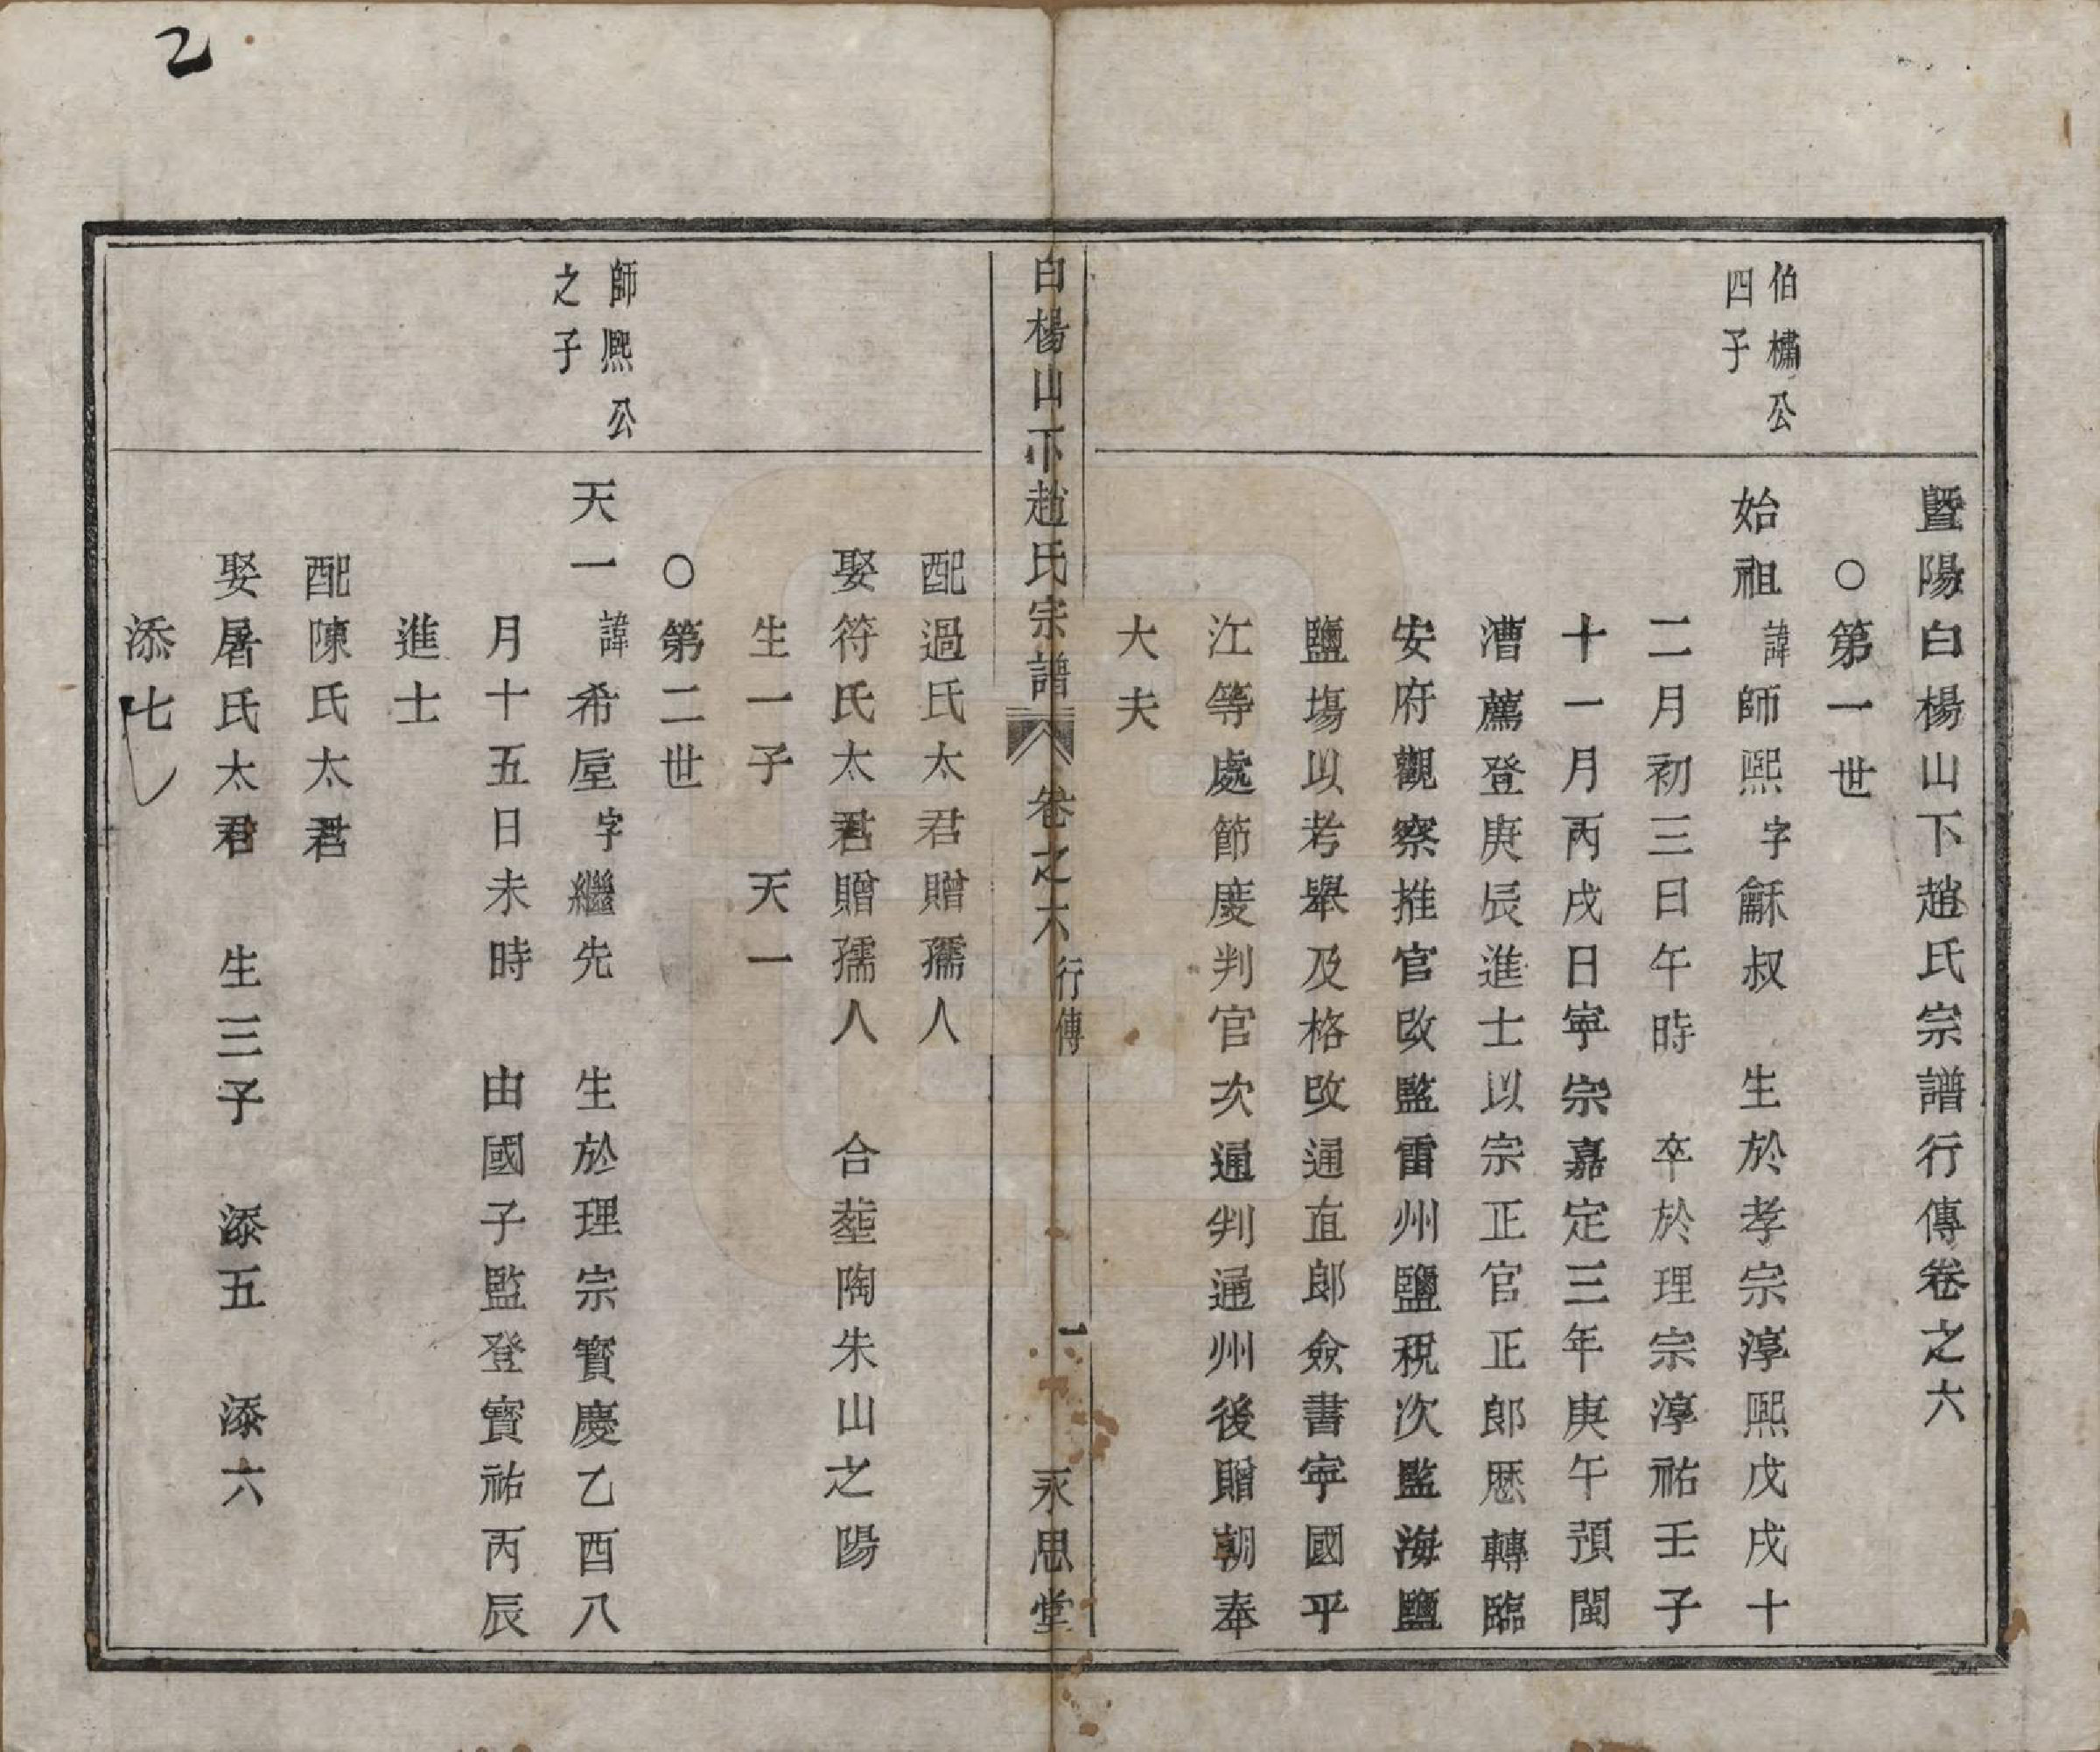 暨陽白楊山下趙氏宗譜行傳卷之六
○第一世
伯橚公
四子
始祖諱師熙字龢叔　生於孝宗淳熙戊戌十
二月初三日午時　卒於理宗淳祐壬子
十一月丙戌日寧宗嘉定三年庚午預閩
漕薦登庚辰進士以宗正官正郎歷轉臨
安府觀察推官改監雷州鹽稅次監海鹽
鹽塲以考舉及格改通直郎僉書寧國平
江等處節度判官次通判通州後贈朝奉
大夫
白楊山下趙氏宗譜　卷之六　行傳　一　永思堂
配過氏太君贈孺人
娶符氏太君贈孺人　合塟陶朱山之陽
生一子　天一
○第二世
師熈公
之子
天一諱希垕字繼先　生於理宗寶慶乙酉八
月十五日未時　由國子監登寶祐丙辰
進士
配陳氏太君
娶屠氏太君　生三子　添五　添六
添七
乙